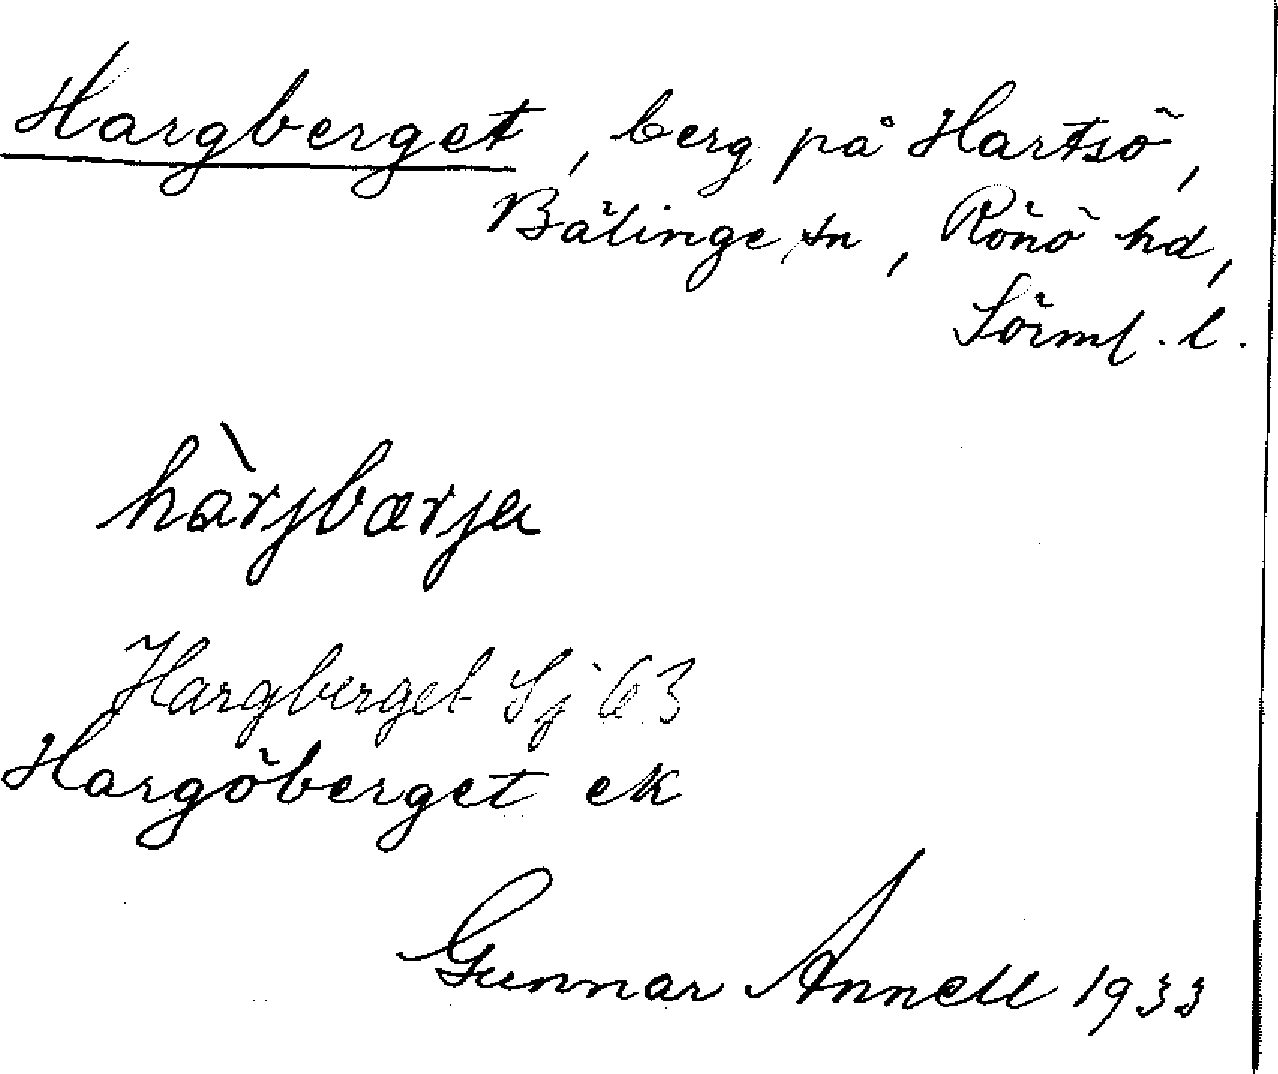 Hargberget, berg på Hartsö,
Bälinge sn, Rönö hd,
Sörml. l.
hàrjbærja
Hargberget Sj 63
Hargöberget ek
Gunnar Annell 1933